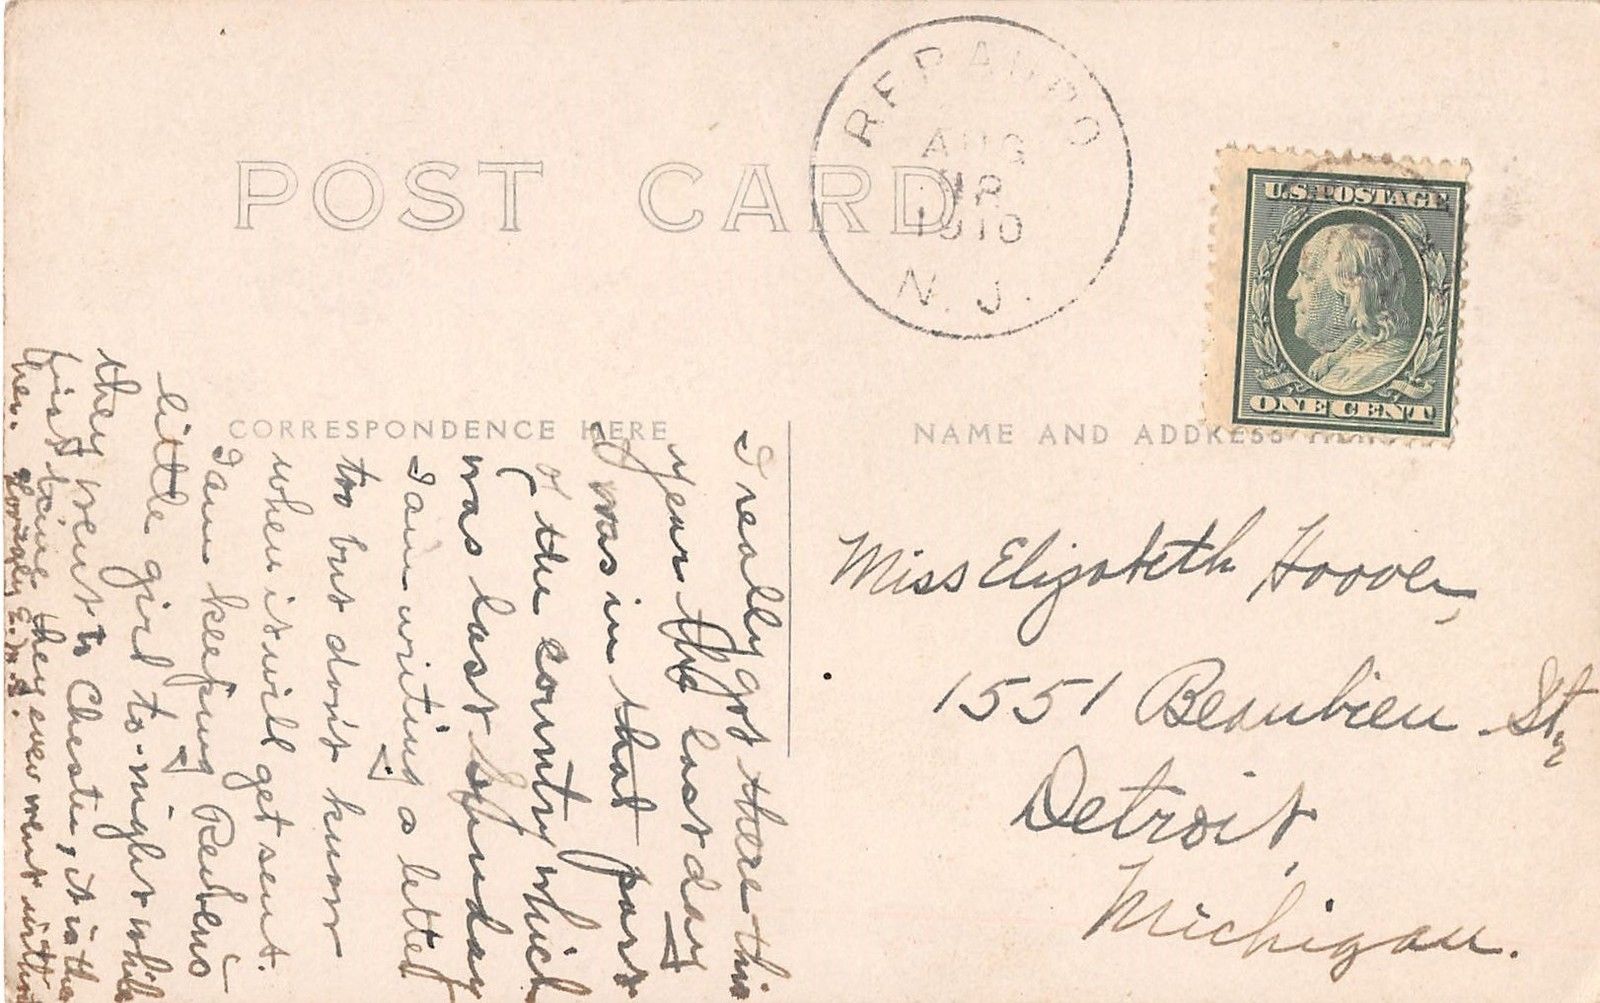 POST CARD
REPAUPO
AUG
1910
N. J.
U.S. POSTAGE
ONE CENT
CORRESPONDENCE HERE
NAME AND ADDRESS HERE
I really got there this
year the last day
I was in that part
of the country which
was last Sunday
I am writing a letter
too but don't know
when it will get sent.
I am keeping Reuben's
little girl to-night while
they went to Chester, it is the
first time they ever went without
her.
Miss Elizabeth Hoover,
1551 Beaubien St,
Detroit,
Michigan.